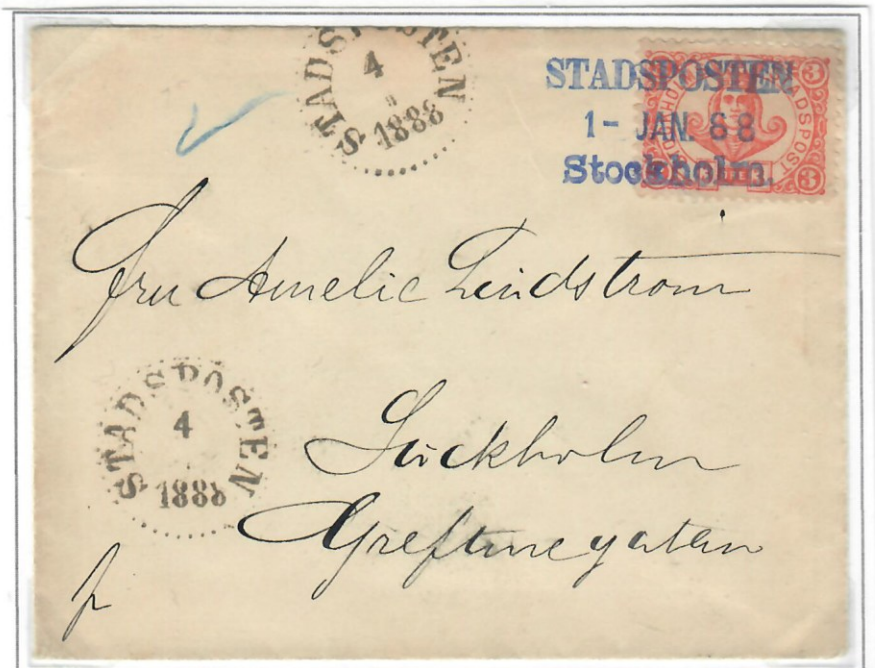 STADSPOSTEN
4
1888
STADSPOSTEN
1- JAN. 88
Stockholm.
STOCKHOLM STADSPOST
3 3
3 3
Fru Amelie Lindstrom
STADSPOSTEN
4
1888
Stockholm
Grefturegatan